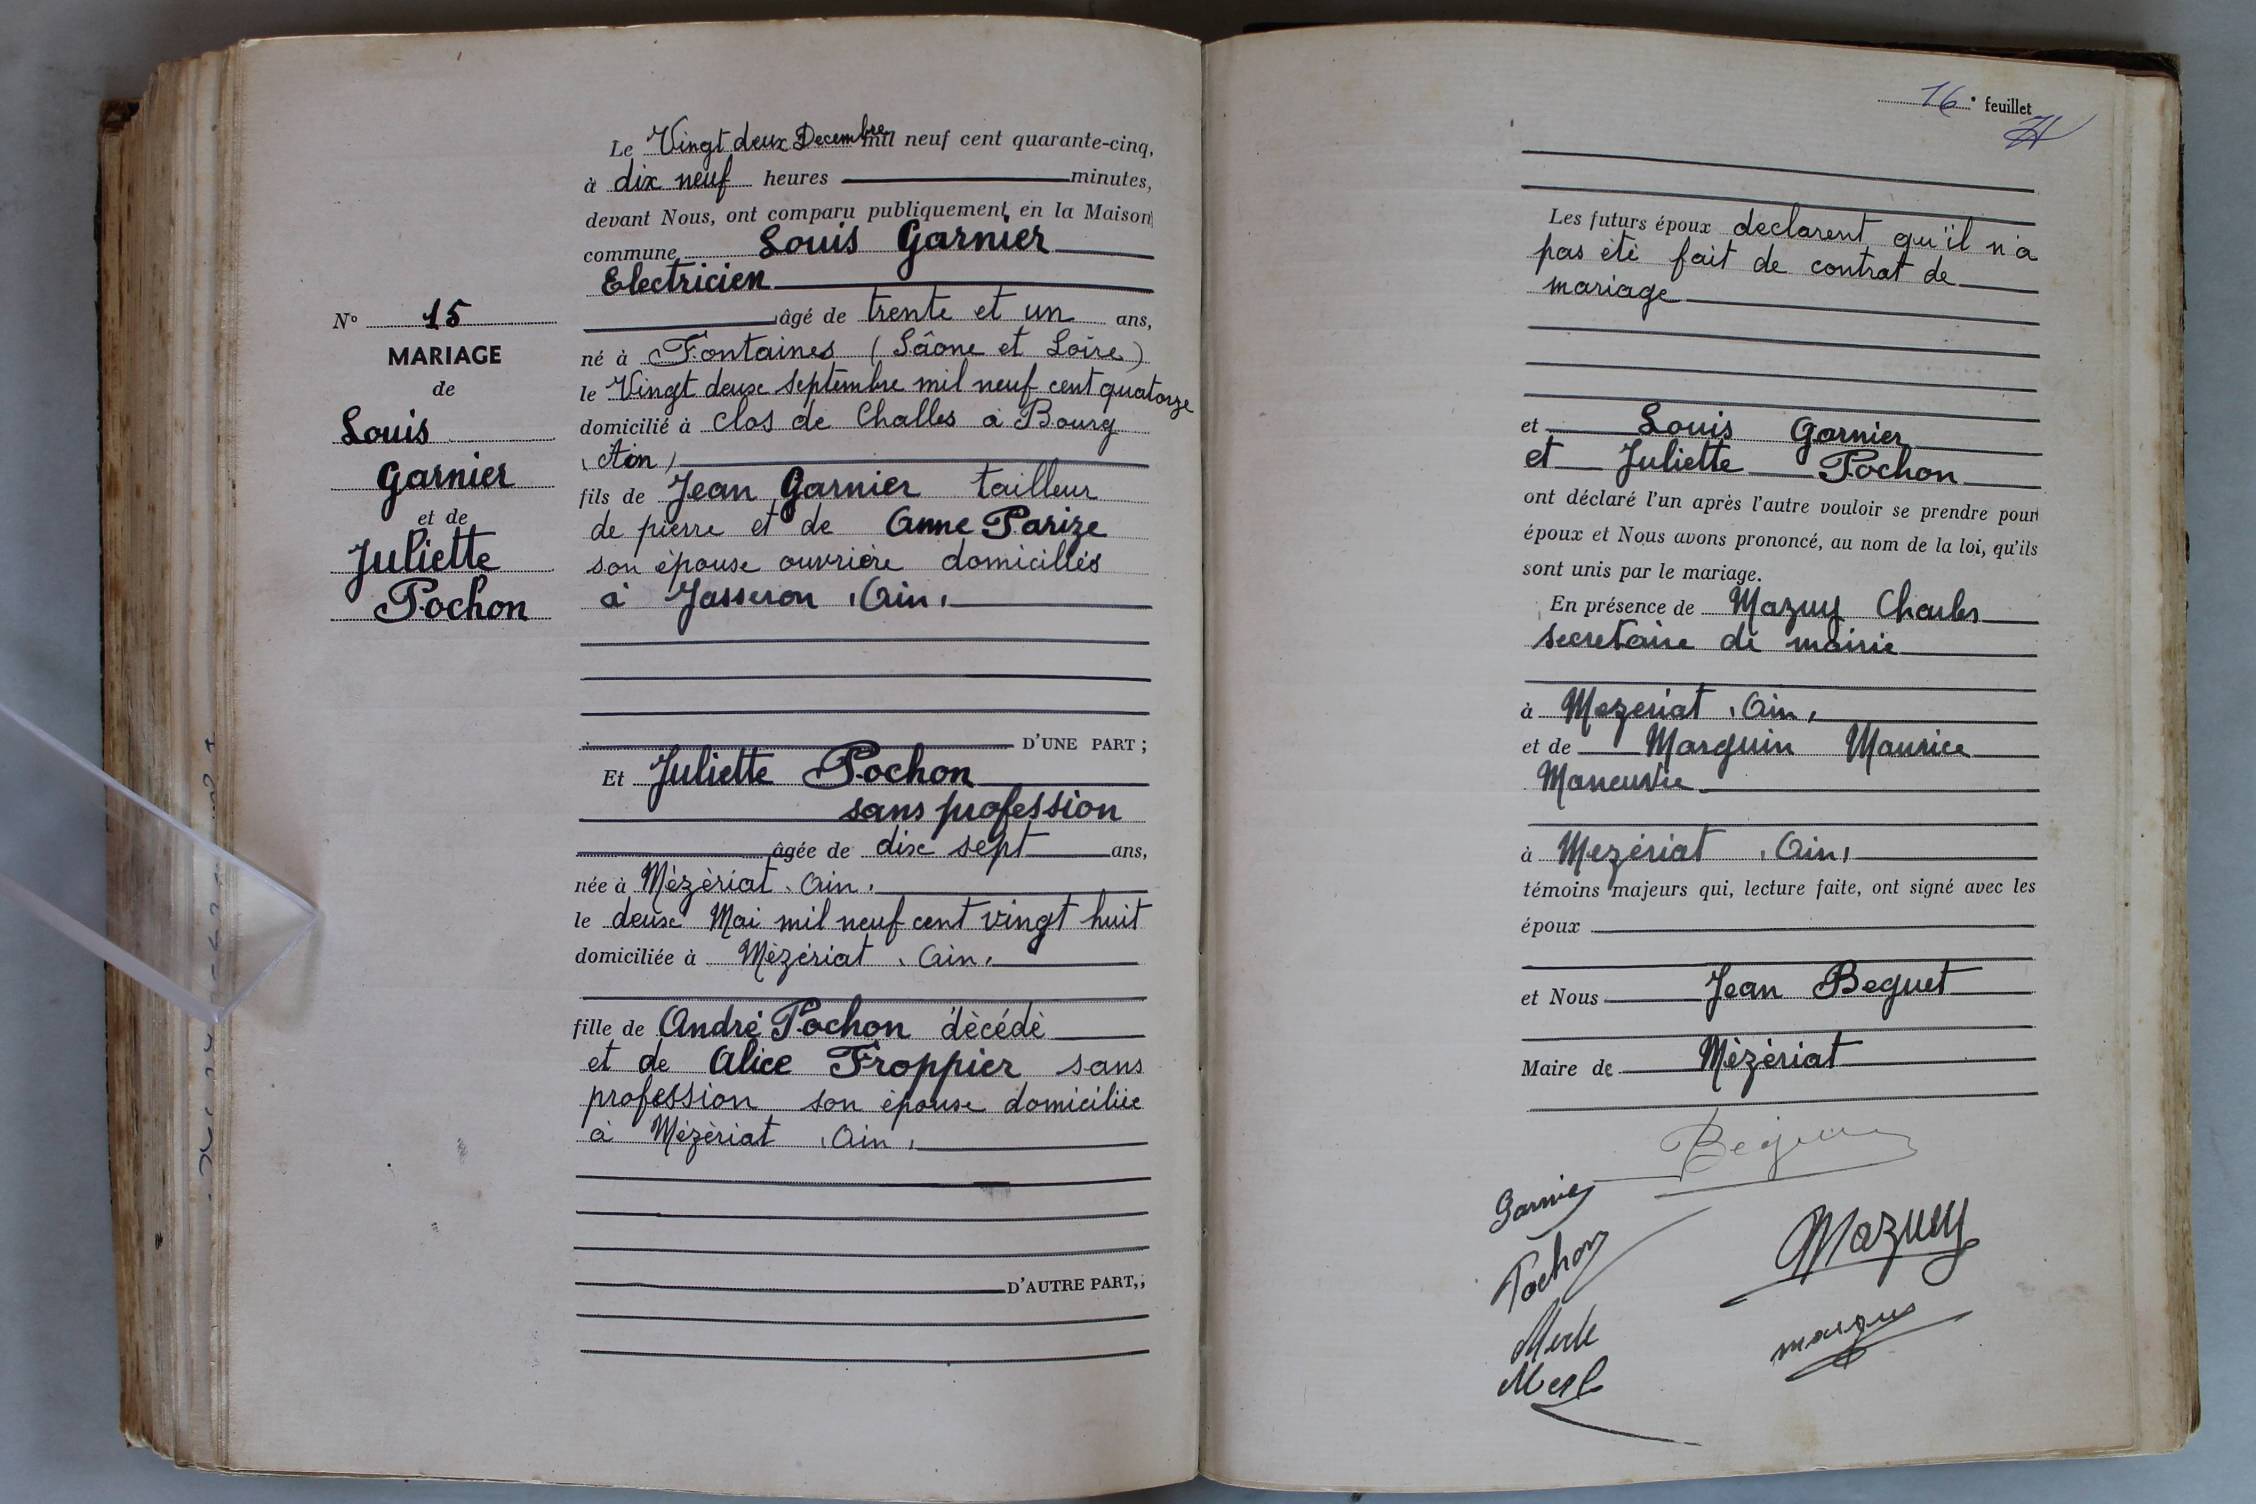 Le Vingt deux Decembre mil neuf cent quarante-cinq,
à dix neuf heures minutes,
devant Nous, ont comparu publiquement en la Maison
commune Louis Garnier
Electricien
âgé de trente et un ans,
né à Fontaines (Sâone et Loire)
le Vingt deux septembre mil neuf cent quatorze
domicilié à clos de Challes à Bourg
(Ain)
fils de Jean Garnier tailleur
de pierre et de Anne Parize
son épouse ouvrière domiciliés
à Jasseron (Ain)
D'UNE PART ;
Et Juliette Pochon
sans profession
âgée de dix sept ans,
née à Mézériat (Ain)
le deux Mai mil neuf cent vingt huit
domiciliée à Mézériat (Ain)
fille de André Pochon décédé
et de Alice Froppier sans
profession son épouse domiciliée
à Mézériat (Ain)
D'AUTRE PART,;
N° 15
MARIAGE
de
Louis
Garnier
et de
Juliette
Pochon
16e feuillet
Les futurs époux declarent qu'il n'a
pas été fait de contrat de
mariage
et Louis Garnier
et Juliette Pochon
ont déclaré l'un après l'autre vouloir se prendre pour
époux et Nous avons prononcé, au nom de la loi, qu'ils
sont unis par le mariage.
En présence de Mazuy Charles
secretaire de mairie
à Mezeriat (Ain)
et de Marguin Maurice
Maneuvre
à Mezériat (Ain)
témoins majeurs qui, lecture faite, ont signé avec les
époux
et Nous Jean Beguet
Maire de Mézériat
Garnier
Pochon
Mazuy